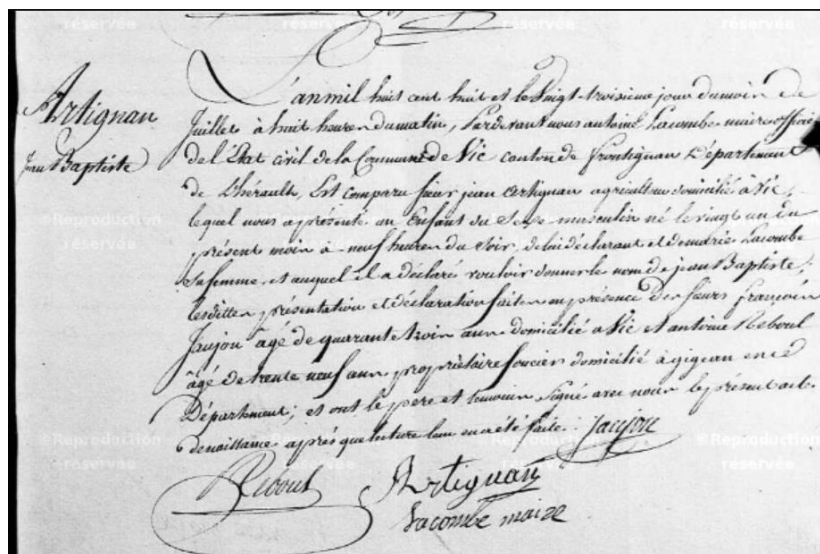 Artignan
Jean Baptiste
L'an mil huit cent huit et le vingt-troisieme jour du mois de
Juillet à huit heures du matin, Pardevant nous antoine Lacombe maire officier
de l'Etat civil de la Commune de Vic canton de frontignan Département
de L'hérault, Est comparu sieur jean artignan agriculteur domicilié à Vic,
lequel nous a présenté un Enfant du Sexe masculin né le vingt un du
présent mois à neuf heures du Soir, de lui déclarant et de marie Lacombe
Sa femme, et auquel il a déclaré vouloir donner le nom de jean Baptiste;
lesdittes présentation et déclaration faites en présence des sieurs françois
Jaujou âgé de quarante trois ans domicilié à Vic et antoine Reboul
âgé de trente neuf ans propriétaire foncier domicilié à gigean en ce
Département; et ont le pere et temoins Signé avec nous le présent acte
de naissance après que lecture leur en a été faite. Jaujou
Reboul Artignan
Lacombe maire
©Reproduction
réservée